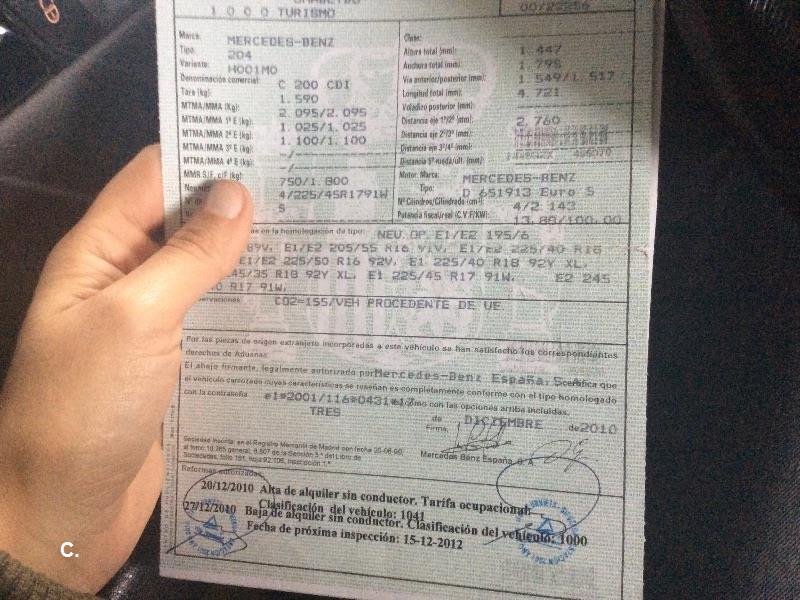 1000 TURISMO
Marca: MERCEDES-BENZ
Tipo: 204
Variante: H001M0
Denominación comercial: C 200 CDI
Tara (kg): 1.590
MTMA/MMA (Kg): 2.095/2.095
MTMA/MMA 1º E (kg): 1.025/1.025
MTMA/MMA 2º E (kg): 1.100/1.100
MTMA/MMA 3º E (kg): -/
MTMA/MMA 4º E (kg): -/
MMR S/F, c/F (kg): 750/1.800
4/225/45R1791W
5
Clase:
Altura total (mm): 1.447
Anchura total (mm): 1.795
Vía anterior/posterior (mm): 1 549/1.517
Longitud total (mm): 4.721
Voladizo posterior (mm):
Distancia eje 1º/2º (mm): 2.760
Distancia eje 2º/3º (mm):
Distancia eje 3º/4º (mm):
Distancia 5ª rueda/ult. (mm):
Motor: Marca: MERCEDES-BENZ
Tipo: D 651913 Euro 5
Nº Cilindros/Cilindrada (cm³): 4/2 143
Potencia fiscal/real (C.V.F/KW): 13.88/100.00
as en la homologación de tipo: NEU.OP. E1/E2 195/6
89V, E1/E2 205/55 R16 91V, E1/E2 225/40 R18
E1/E2 225/50 R16 92V, E1 225/40 R18 92Y XL,
45/35 R18 92Y XL, E1 225/45 R17 91W, E2 245
0 R17 91W,
servaciones CO2=155/VEH PROCEDENTE DE UE
Por las piezas de origen extranjero incorporadas a este vehículo se han satisfecho los correspondientes
derechos de Aduanas.
El abajo firmante, legalmente autorizado por Mercedes-Benz España, S certifica que
el vehículo carrozado cuyas características se reseñan es completamente conforme con el tipo homologado
con la contraseña e1*2001/116*0431*17 mo con las opciones arriba incluidas.
TRES de DICIEMBRE de 2010
Firma,
Mercedes Benz España, S. A.
Sociedad inscrita: en el Registro Mercantil de Madrid con fecha
al tomo 10.265 general, 8.507 de la Sección 3.ª del Libro de
Sociedades, folio 151, hoja 92.106, inscripción 1.ª
Reformas autorizadas:
20/12/2010 Alta de alquiler sin conductor. Tarifa ocupacional
Clasificación del vehículo: 1041
27/12/2010 Baja de alquiler sin conductor. Clasificación del vehículo: 1000
Fecha de próxima inspección: 15-12-2012
C.